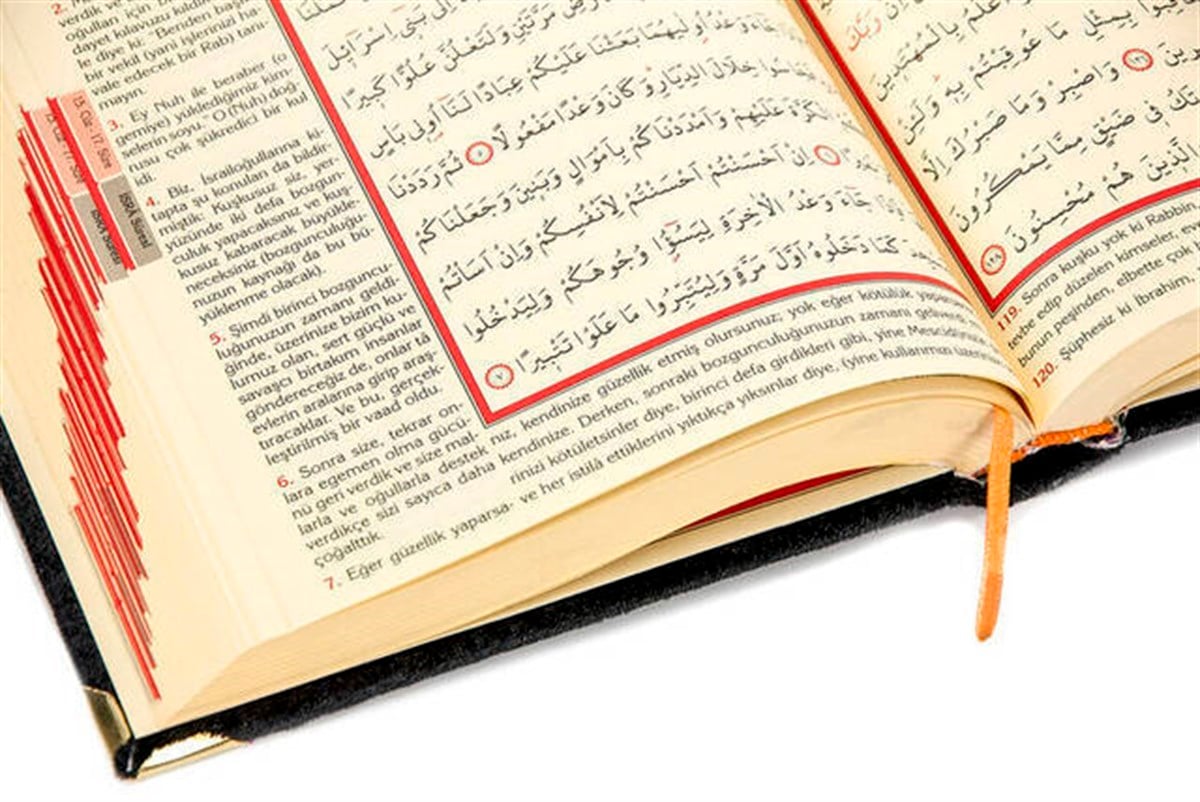 2.
verdik ve
oğulları için bir
dayet kılavuzu kıldık
le diye ki: "Benden başka
bir vekil (yani işlerinizi ha-
vale edecek bir Rab) tanı-
mayın.
3. Ey Nuh ile beraber (o
gemiye) yüklediğimiz kim-
selerin soyu." O (Nuh) doğ-
rusu çok şükredici bir kul
idi.
4. Biz, İsrailoğullarına ki-
tapta şu konuları da bildir-
miştik: Kuşkusuz siz, yer-
yüzünde iki defa bozgun-
culuk yapacaksınız ve kuş-
kusuz kabaracak büyükle-
neceksiniz (bozgunculuğu-
nuzun kaynağı da bu bü-
yüklenme olacak).
5. Şimdi birinci bozguncu-
luğunuzun zamanı geldi-
ğinde, üzerinize bizim ku-
lumuz olan, sert güçlü ve
savaşçı birtakım insanlar
göndereceğiz de, onlar ta
evlerin aralarına girip araş-
tıracaklar. Ve bu, gerçek-
leştirilmiş bir vaad oldu.
6. Sonra size, tekrar on-
lara egemen olma gücü-
nü geri verdik ve size mal-
larla ve oğullarla destek
verdikçe sizi sayıca daha
çoğalttık.
7. Eğer güzellik yaparsa-
nız, kendinize güzellik etmiş olursunuz; yok eğer kötülük yaparsanız
kendinize. Derken, sonraki bozgunculuğunuzun zamanı gelive
rinizi kötületsinler diye, birinci defa girdikleri gibi, yine Mescid
ve her istilâ ettiklerini yıktıkça yıksınlar diye, (yine kullarımın üzeri
15. Cüz - 17. Sûre
İSRÂ Sûresi
15. Cüz - 17. Sûre
İSRÂ Sûresi
مَرَّتَيْنِ وَلَتَعْلُنَّ عُلُوًّا كَبِيرًا
وَعْدُ اُو۫لٰيهُمَا بَعَثْنَا عَلَيْكُمْ عِبَادًا لَنَٓا اُو۬لٖي بَاْسٍ
خِلَالَ الدِّيَارِ وَكَانَ وَعْدًا مَفْعُولًا ٥ ثُمَّ رَدَدْنَا
الْكَرَّةَ عَلَيْهِمْ وَاَمْدَدْنَاكُمْ بِاَمْوَالٍ وَبَنٖينَ وَجَعَلْنَاكُمْ
٦ اِنْ اَحْسَنْتُمْ اَحْسَنْتُمْ لِاَنْفُسِكُمْ وَاِنْ اَسَأْتُمْ
جَٓاءَ وَعْدُ الْاٰخِرَةِ لِيَسُٓوؤُ۫ا وُجُوهَكُمْ وَلِيَدْخُلُوا
كَمَا دَخَلُوهُ اَوَّلَ مَرَّةٍ وَلِيُتَبِّرُوا مَا عَلَوْا تَتْبٖيرًا ٧
اِنَّ رَبَّكَ
اَعْلَمُ بِالْمُهْتَدٖينَ
بِمِثْلِ مَا عُوقِبْتُمْ بِهٖ وَلَئِنْ
١٢٦ وَاصْبِرْ وَمَا صَبْرُكَ اِلَّا
فٖي ضَيْقٍ مِمَّا يَمْكُرُونَ
الَّذٖينَ هُمْ مُحْسِنُونَ ١٢٨
119. Sonra kuşku yok ki Rabbin
tevbe edip düzelen kimseler, ev
bunun peşinden, elbette çok
120. Şüphesiz ki İbrahim,